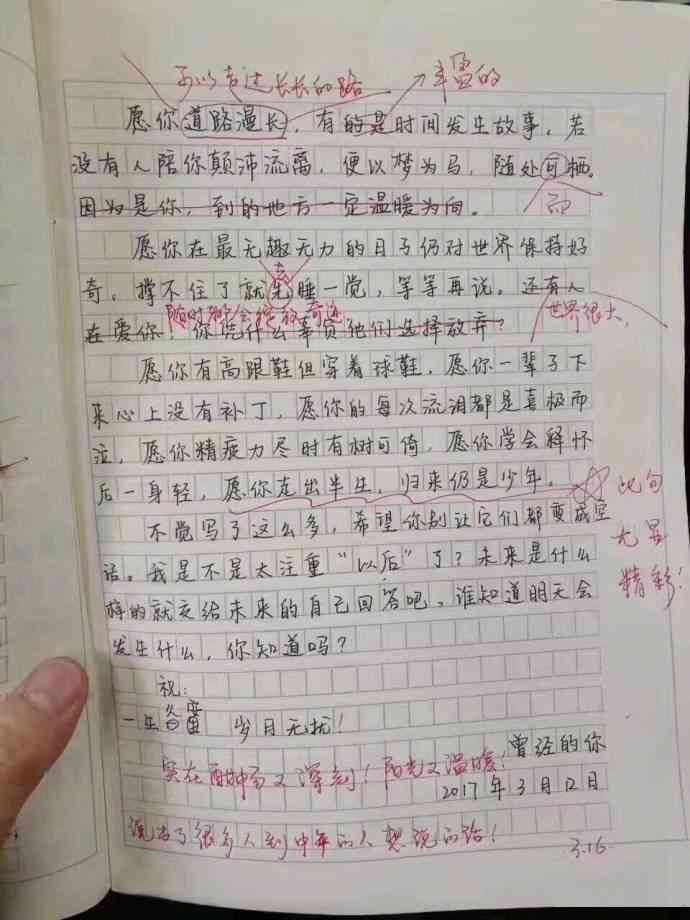 可以走过长长的路 丰富的
愿你道路漫长，有的是时间发生故事。若
没有人陪你颠沛流离，便以梦为马，随处可栖。
因为是你，到的地方一定温暖为向。 而
愿你在最无趣无力的日子仍对世界保持好
去
奇。撑不住了就先睡一觉，等等再说。还有人
随时都会绽放奇迹 世界很大，
在爱你，你凭什么辜负他们选择放弃？
愿你有高跟鞋但穿着球鞋，愿你一辈子下
来心上没有补丁，愿你的每次流泪都是喜极而
泣，愿你精疲力尽时有树可倚，愿你学会释怀
后一身轻，愿你走出半生，归来仍是少年。 此句
不觉写了这么多，希望你别让它们都变成空 尤其
话。我是不是太注重“以后”了？未来是什么 精彩！
样的就交给未来的自己回答吧，谁知道明天会
发生什么，你知道吗？
祝：
一生 岁月无扰！
实在 而又深刻！阳光又温暖！ 曾经的你
2017年3月12日
说出了很多人到中年的人想说的话！ 3.16